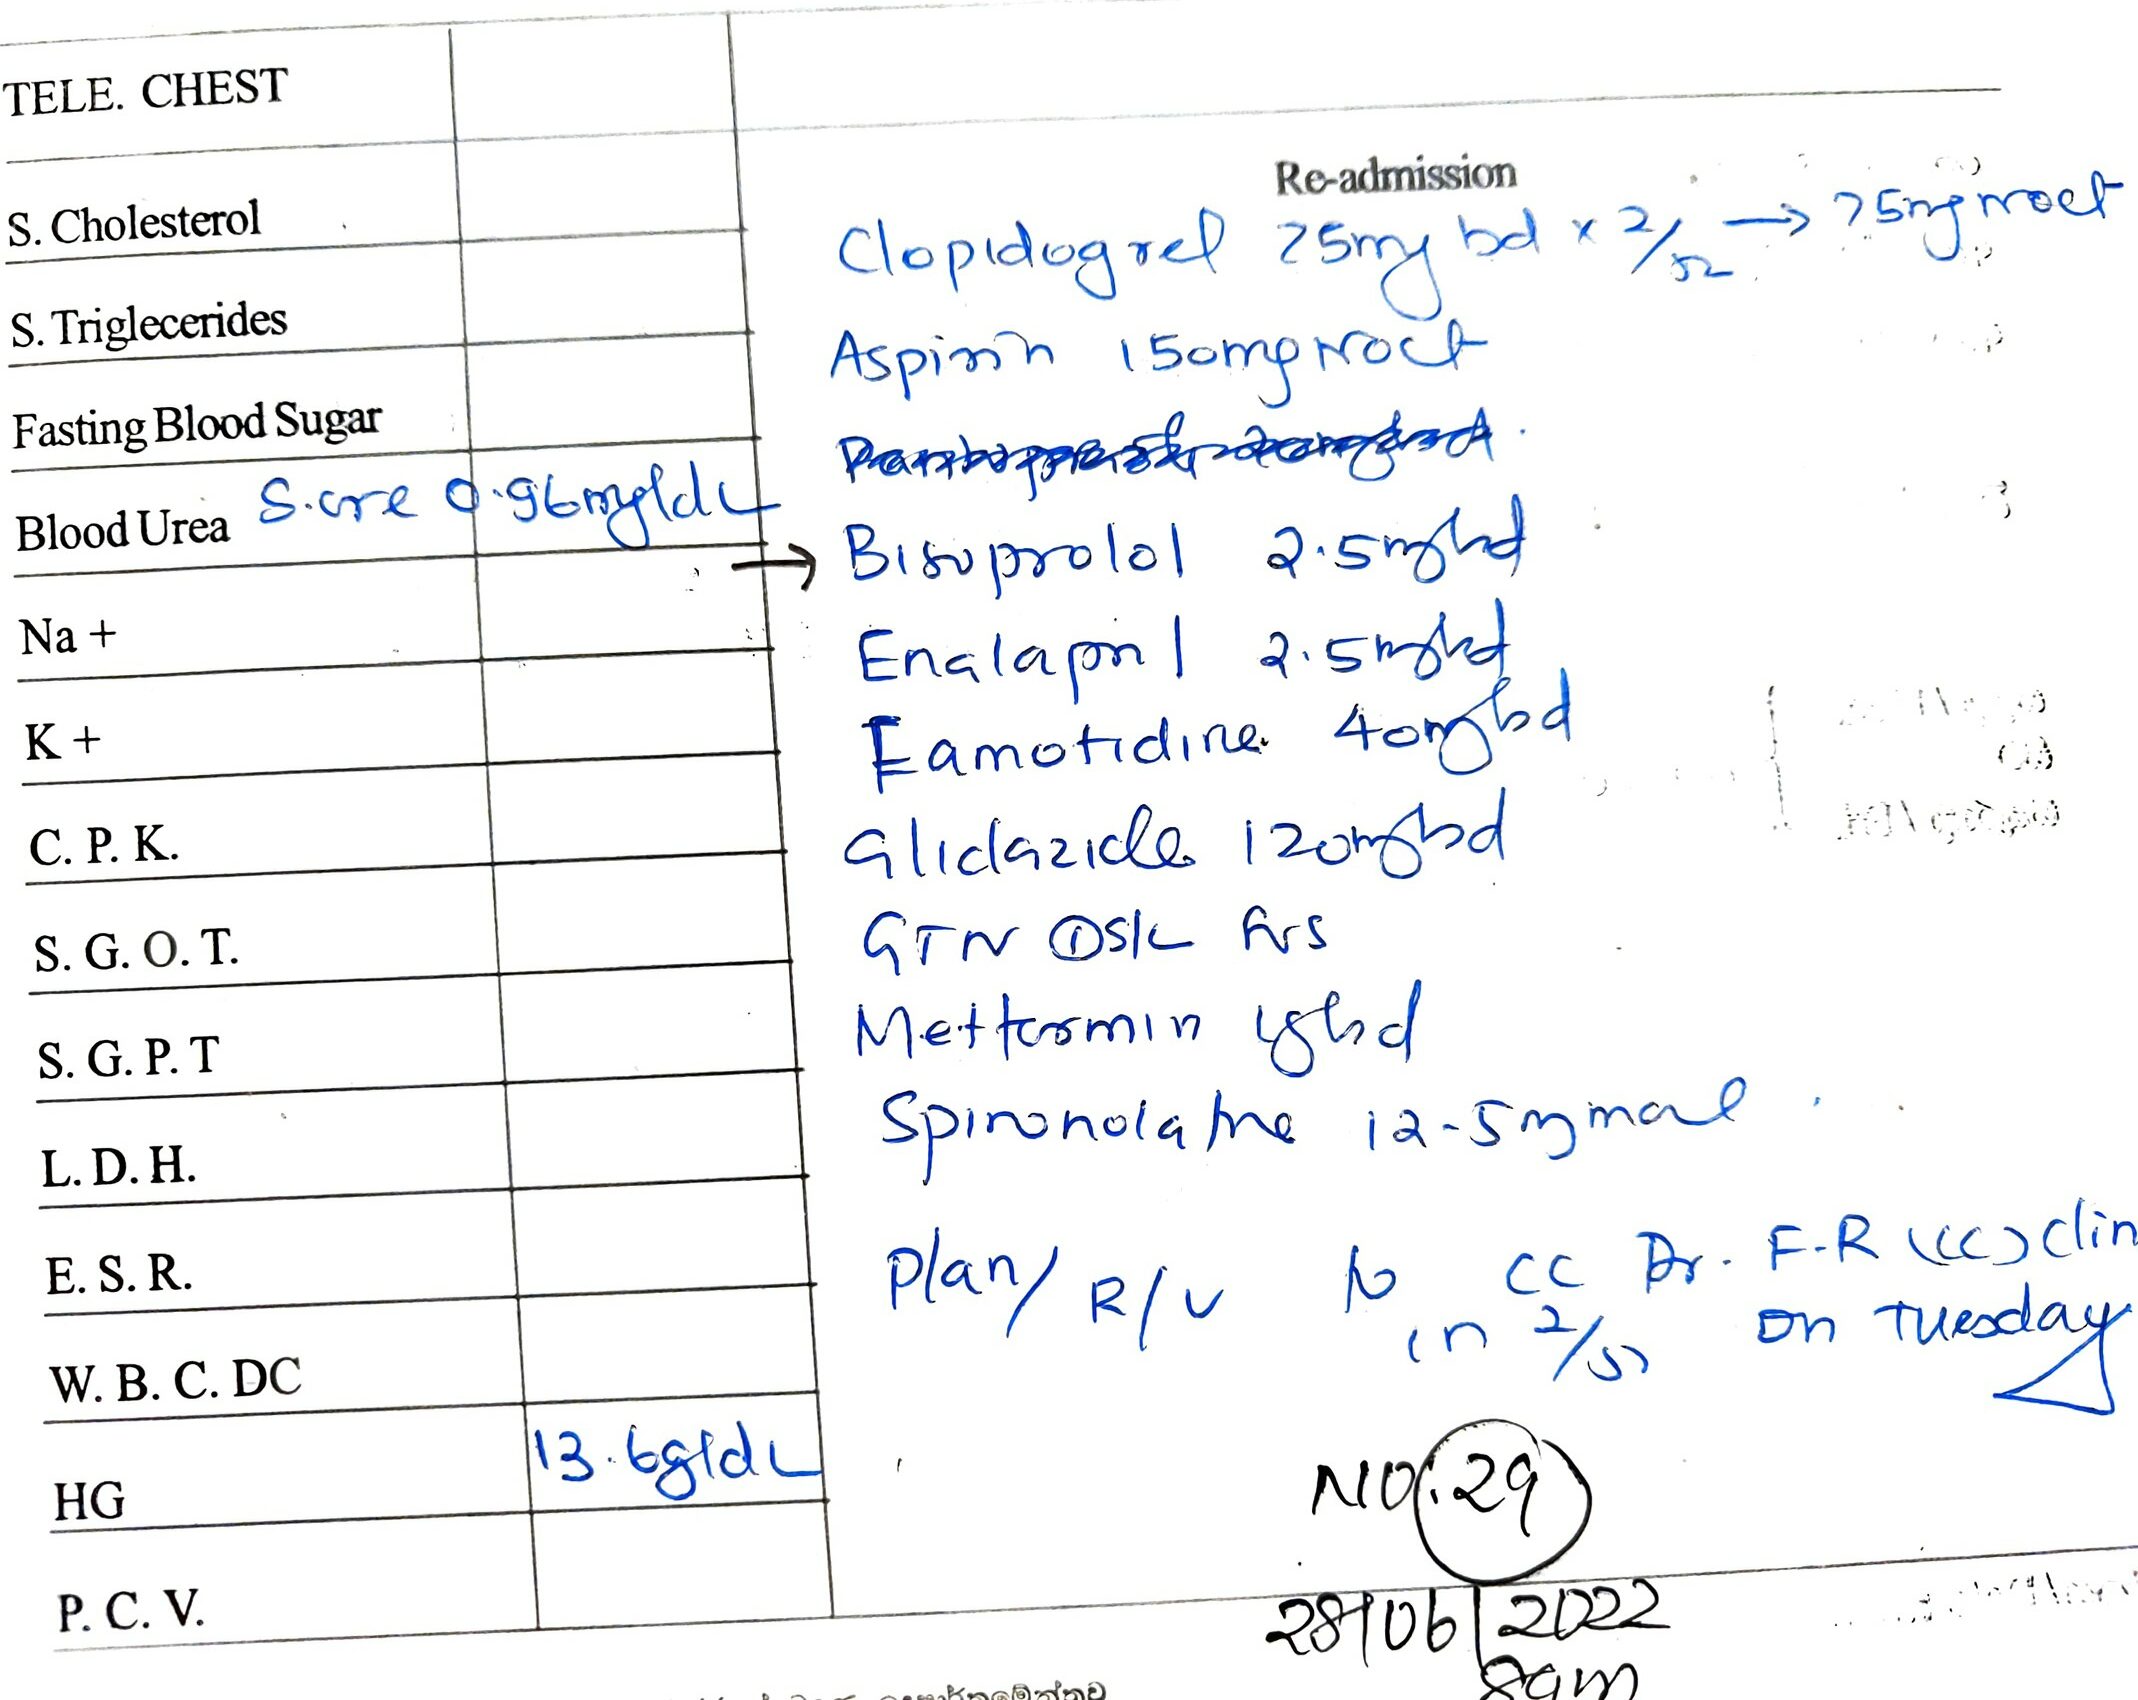 TELE. CHEST
Re-admission
S. Cholesterol
Clopidogrel 75mg bd x 2/52 → 75mg noct
S. Triglecerides
Aspirin 150mg Noct
Fasting Blood Sugar
Blood Urea S.cre 0.96mg/dL
→ Bisoprolol 2.5mg bd
Na +
Enalapril 2.5mg bd
K +
Famotidine 40mg bd
C. P. K.
Gliclazide 120mg bd
S. G. O. T.
GTN ① S/L
S. G. P. T
Metformin 1g bd
L. D. H.
Spironolactone 12.5mg mane
E. S. R.
Plan/ R/V CC Dr. F-R (CC) clin
in 2/52 on Tuesday
W. B. C. DC
HG 13.6g/dL
NO. 29
P. C. V.
28/06/2022
8am